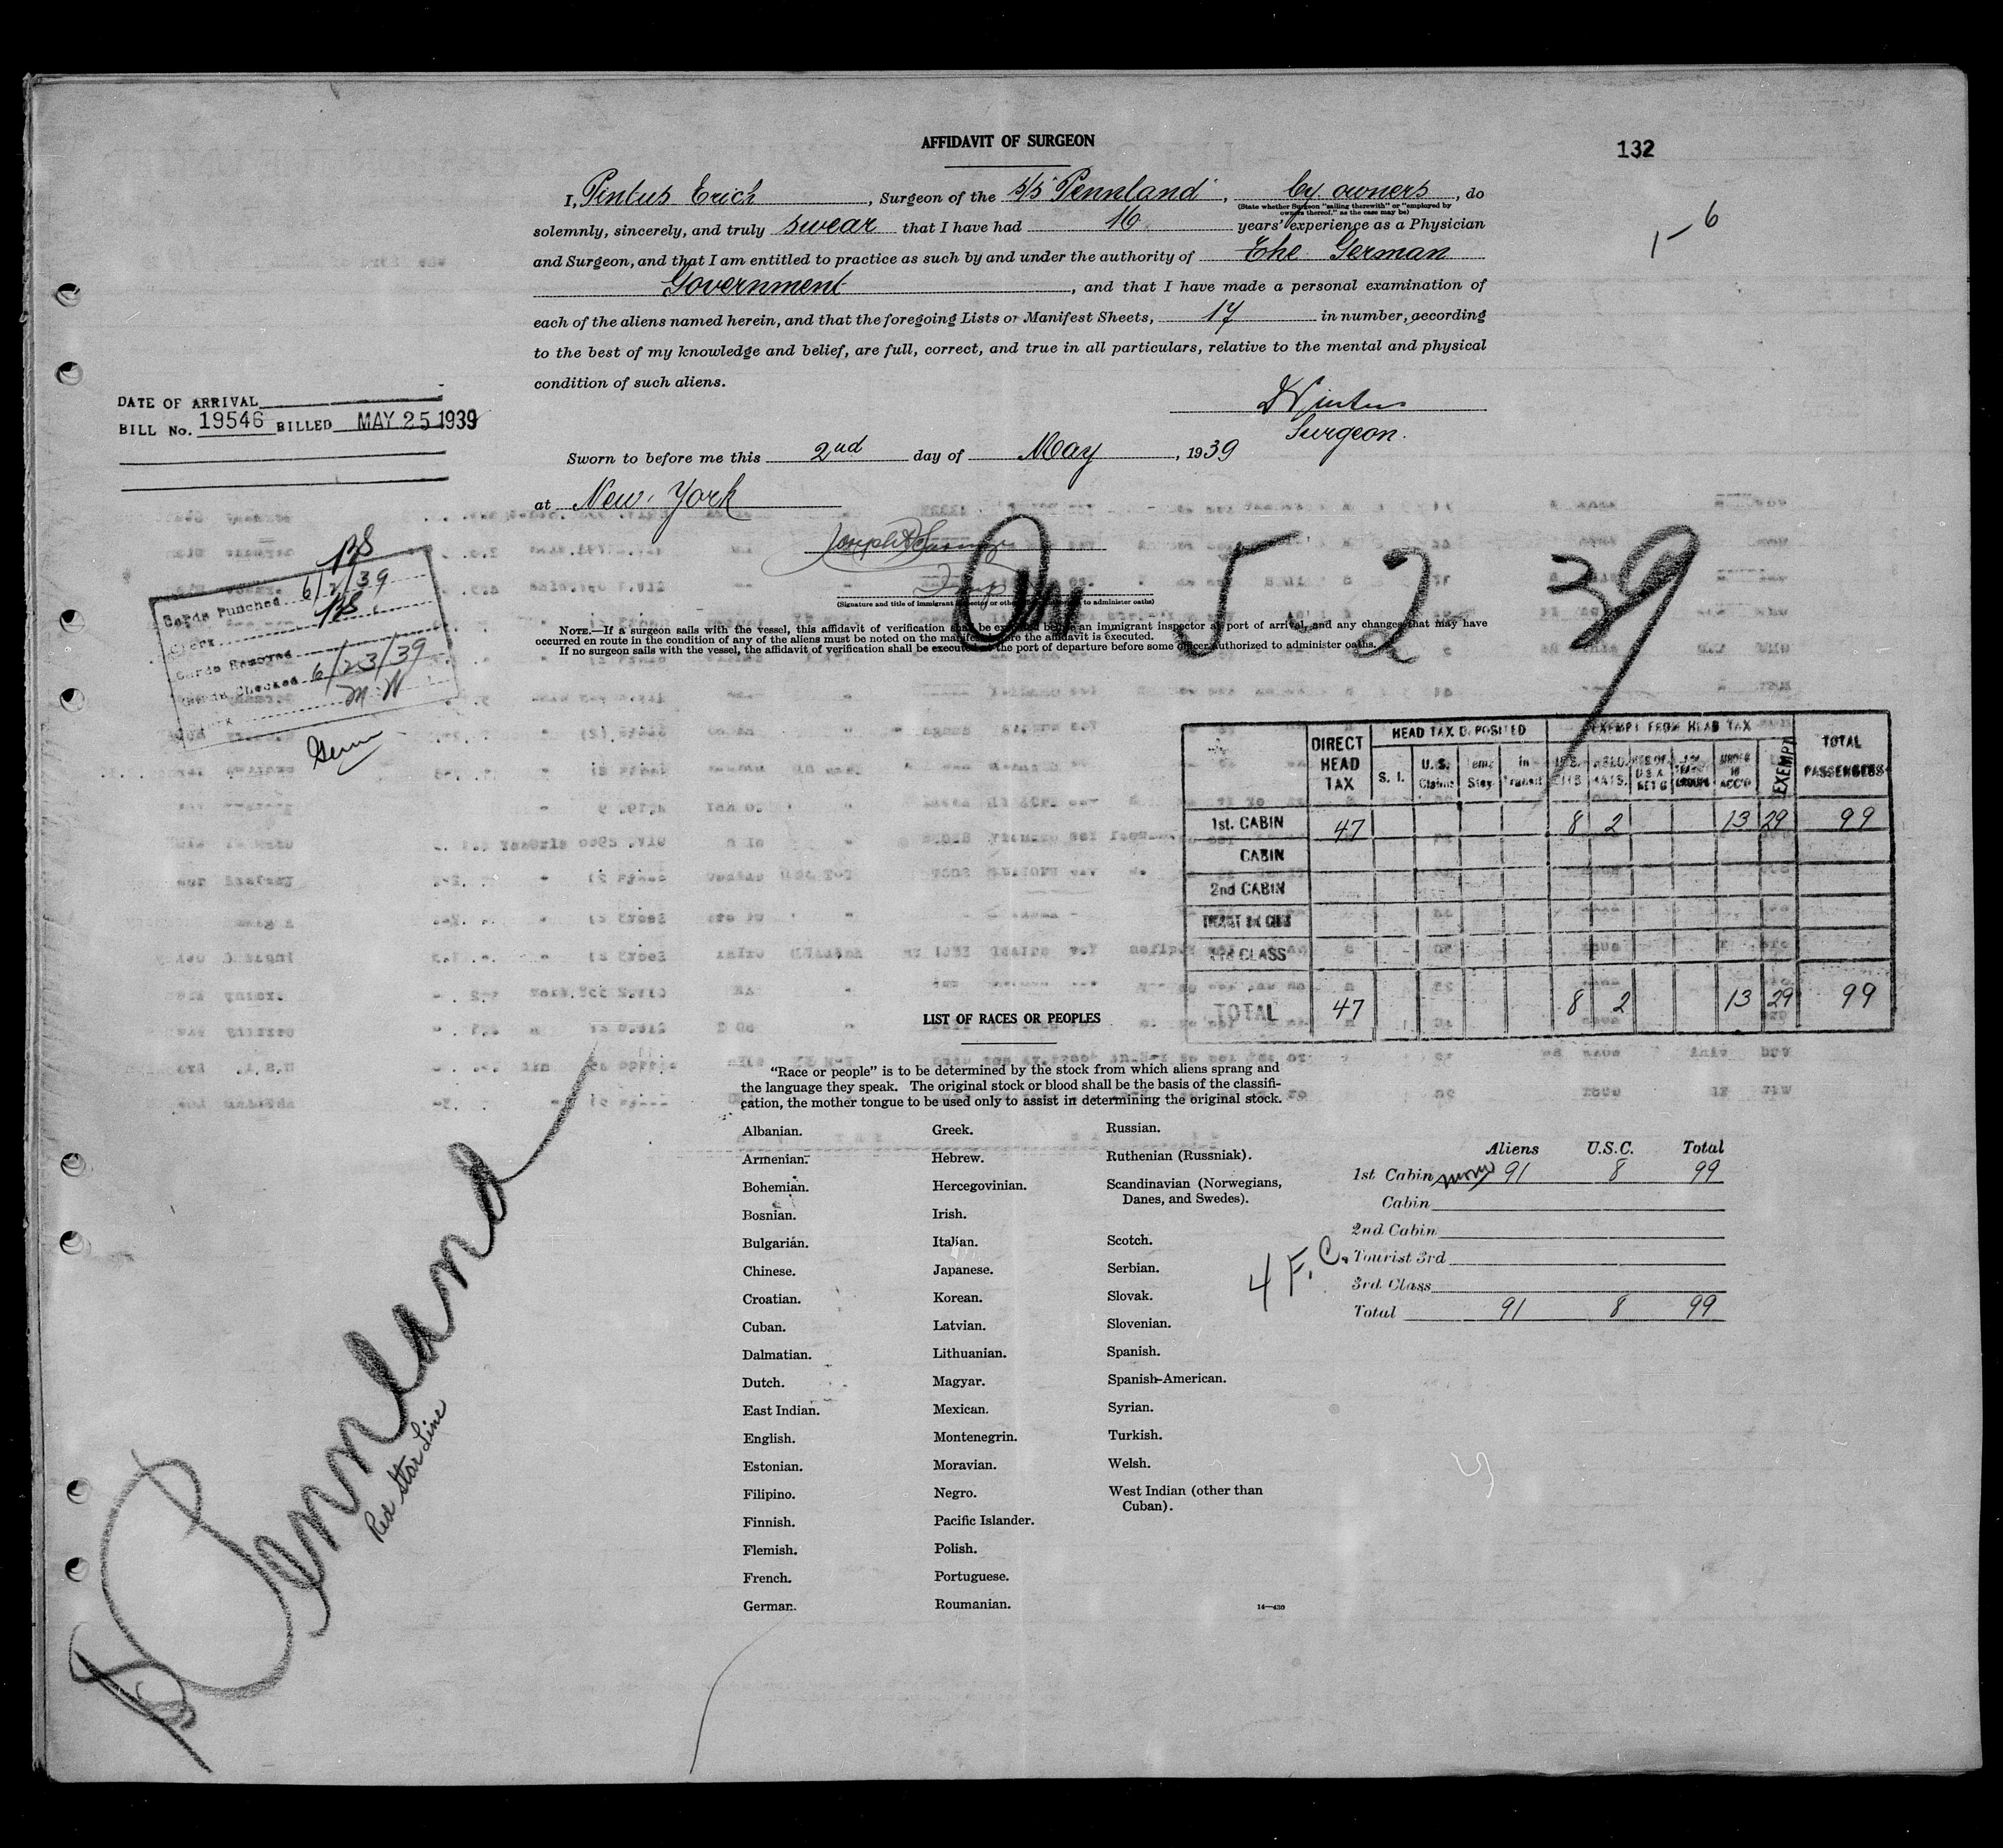 AFFIDAVIT OF SURGEON
132
I, Pintus Erich, Surgeon of the S/S "Pennland", by owners, do
(State whether Surgeon "sailing therewith" or "employed by owners thereof," as the case may be)
solemnly, sincerely, and truly swear that I have had 16 years' experience as a Physician
and Surgeon, and that I am entitled to practice as such by and under the authority of The German
Government, and that I have made a personal examination of
each of the aliens named herein, and that the foregoing Lists or Manifest Sheets, 17 in number, according
to the best of my knowledge and belief, are full, correct, and true in all particulars, relative to the mental and physical
condition of such aliens.
1-6
Surgeon.
DATE OF ARRIVAL
BILL No. 19546 BILLED MAY 25 1939
Sworn to before me this 2nd day of May, 1939
at New York
(Signature and title of immigrant inspector or other to administer oaths)
5-2 39
Cards Punched 6/2/39
Clerk
Cards Removed
Checked 6/23/39
Clerk M W
NOTE.—If a surgeon sails with the vessel, this affidavit of verification shall be executed before an immigrant inspector at port of arrival, and any changes that may have
occurred en route in the condition of any of the aliens must be noted on the manifest before the affidavit is executed.
If no surgeon sails with the vessel, the affidavit of verification shall be executed at the port of departure before some officer authorized to administer oaths.
DIRECT HEAD TAX
HEAD TAX DEPOSITED
EXEMPT FROM HEAD TAX
TOTAL PASSENGERS
S. I. U.S. Claims Temp Stay In Transit EXEMPT
1st. CABIN 47 8 2 13 29 99
CABIN
2nd CABIN
CLASS
TOTAL 47 8 2 13 29 99
LIST OF RACES OR PEOPLES
"Race or people" is to be determined by the stock from which aliens sprang and
the language they speak. The original stock or blood shall be the basis of the classifi-
cation, the mother tongue to be used only to assist in determining the original stock.
Albanian.
Armenian.
Bohemian.
Bosnian.
Bulgarian.
Chinese.
Croatian.
Cuban.
Dalmatian.
Dutch.
East Indian.
English.
Estonian.
Filipino.
Finnish.
Flemish.
French.
German.
Greek.
Hebrew.
Hercegovinian.
Irish.
Italian.
Japanese.
Korean.
Latvian.
Lithuanian.
Magyar.
Mexican.
Montenegrin.
Moravian.
Negro.
Pacific Islander.
Polish.
Portuguese.
Roumanian.
Russian.
Ruthenian (Russniak).
Scandinavian (Norwegians,
Danes, and Swedes).
Scotch.
Serbian.
Slovak.
Slovenian.
Spanish.
Spanish-American.
Syrian.
Turkish.
Welsh.
West Indian (other than
Cuban).
14—430
Aliens U.S.C. Total
1st Cabin 91 8 99
Cabin
2nd Cabin
Tourist 3rd
3rd Class
Total 91 8 99
4 F.C.
Pennland
Red Star Line